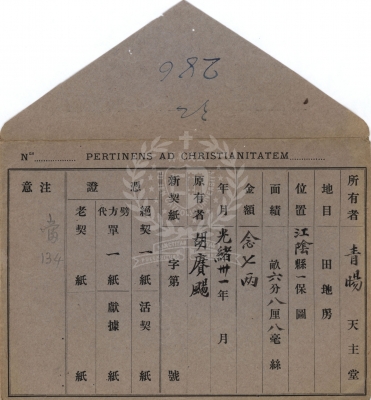 286
32
Nus PERTINENS AD CHRISTIANITATEM
所有者 青暘 天主堂
地目 田地房
位置 江陰縣一保圖
面績 畝六分八厘八毫 絲
金額 念七兩
年月 光緒卅一年 月
原有者 胡賡颺
新契紙 字第 號
憑證
絕契一紙 活契 紙
劈方代單一紙 獻據 紙
老契 紙 紙
注意
134